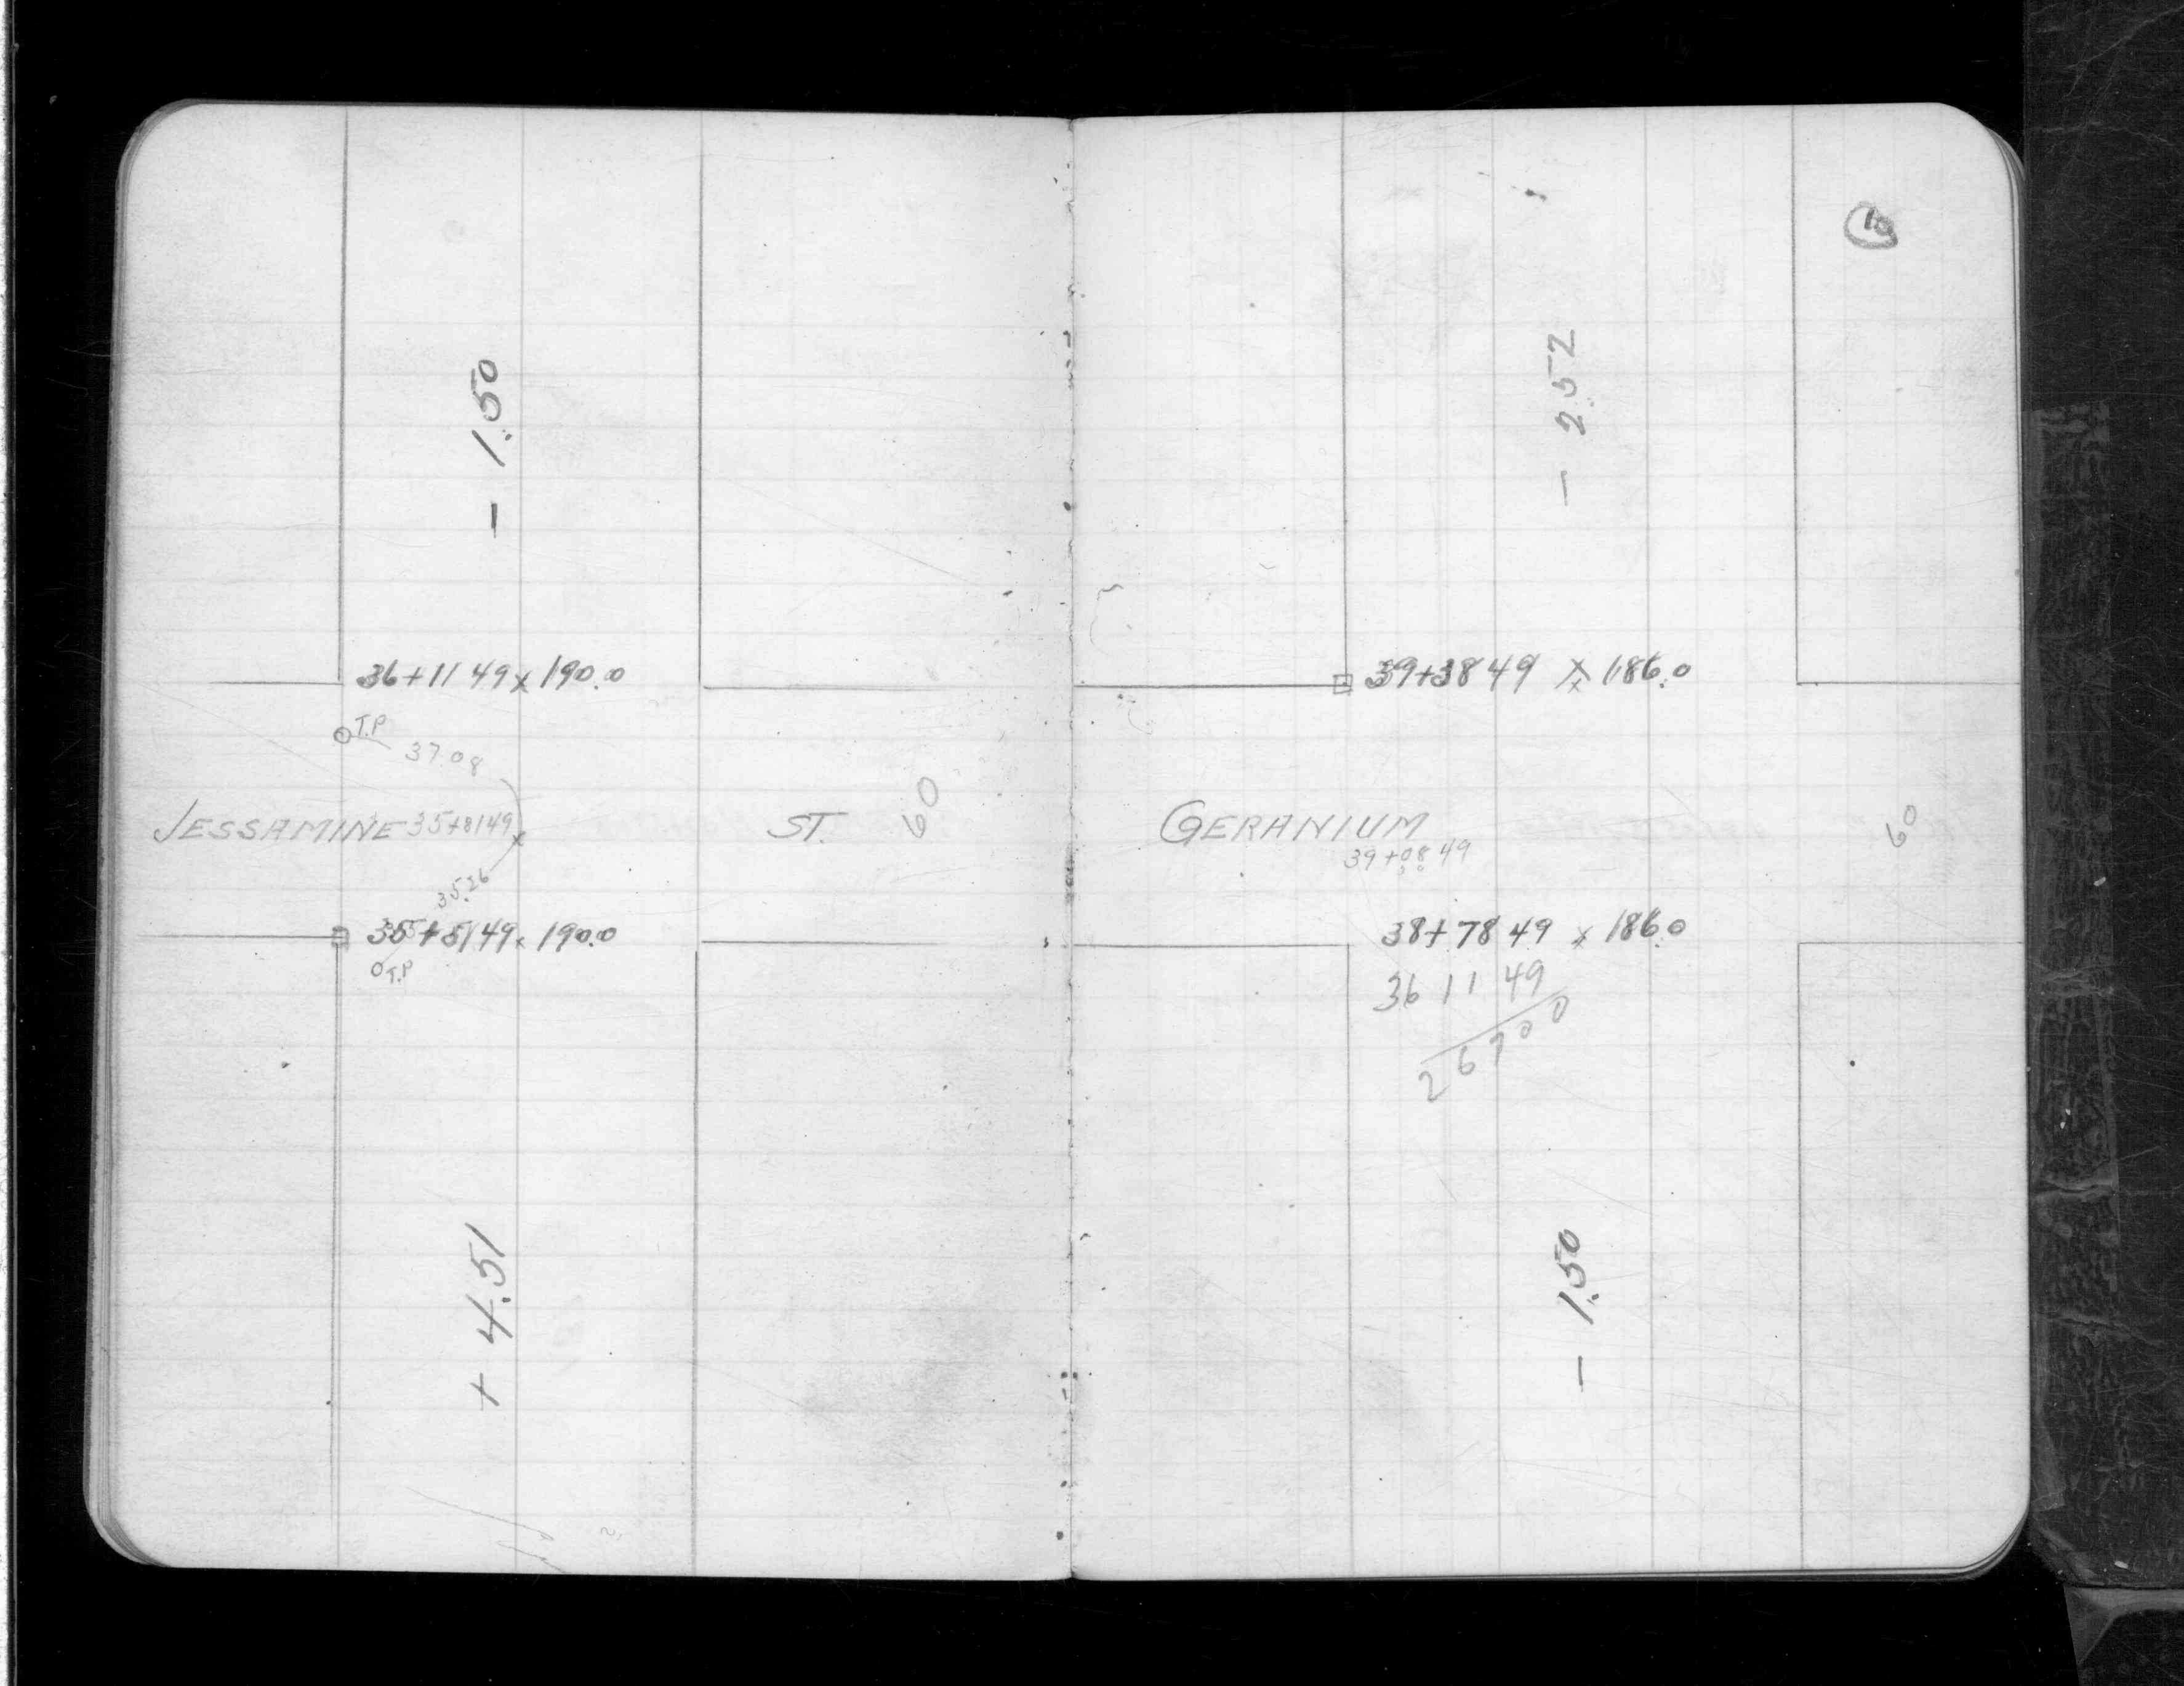 - 1.50
36+11 49 x 190.0
T.P
37.08
JESSAMINE 35+81 49
ST.
60
35.26
35+51 49 x 190.0
T.P
+ 4.51
10
- 2.52
39+38 49 x 186.0
GERANIUM
39+08 49
60
38+78 49 x 186.0
36 11 49
2 67 00
- 1.50